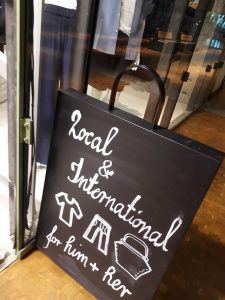 Local
&
International
for him + her